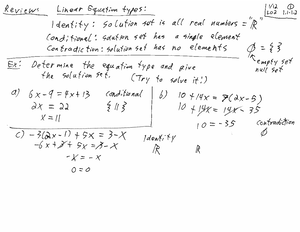 Review: Linear Equation types:
Identity: solution set is all real numbers = "ℝ"
Conditional: solution set has a single element
Contradiction: solution set has no elements
∅ = { }
empty set
null set
1.1-1.2
Ex: Determine the equation type and give
the solution set. (Try to solve it!)
a) 6x - 9 = 4x + 13 conditional
2x = 22 {11}
x = 11
b) 10 + 14x = 7(2x - 5)
10 + 14x = 14x - 35
10 = -35 contradiction
∅
c) -3(2x - 1) + 5x = 3 - x identity
-6x + 3 + 5x = 3 - x ℝ ℝ
-x = -x
0 = 0